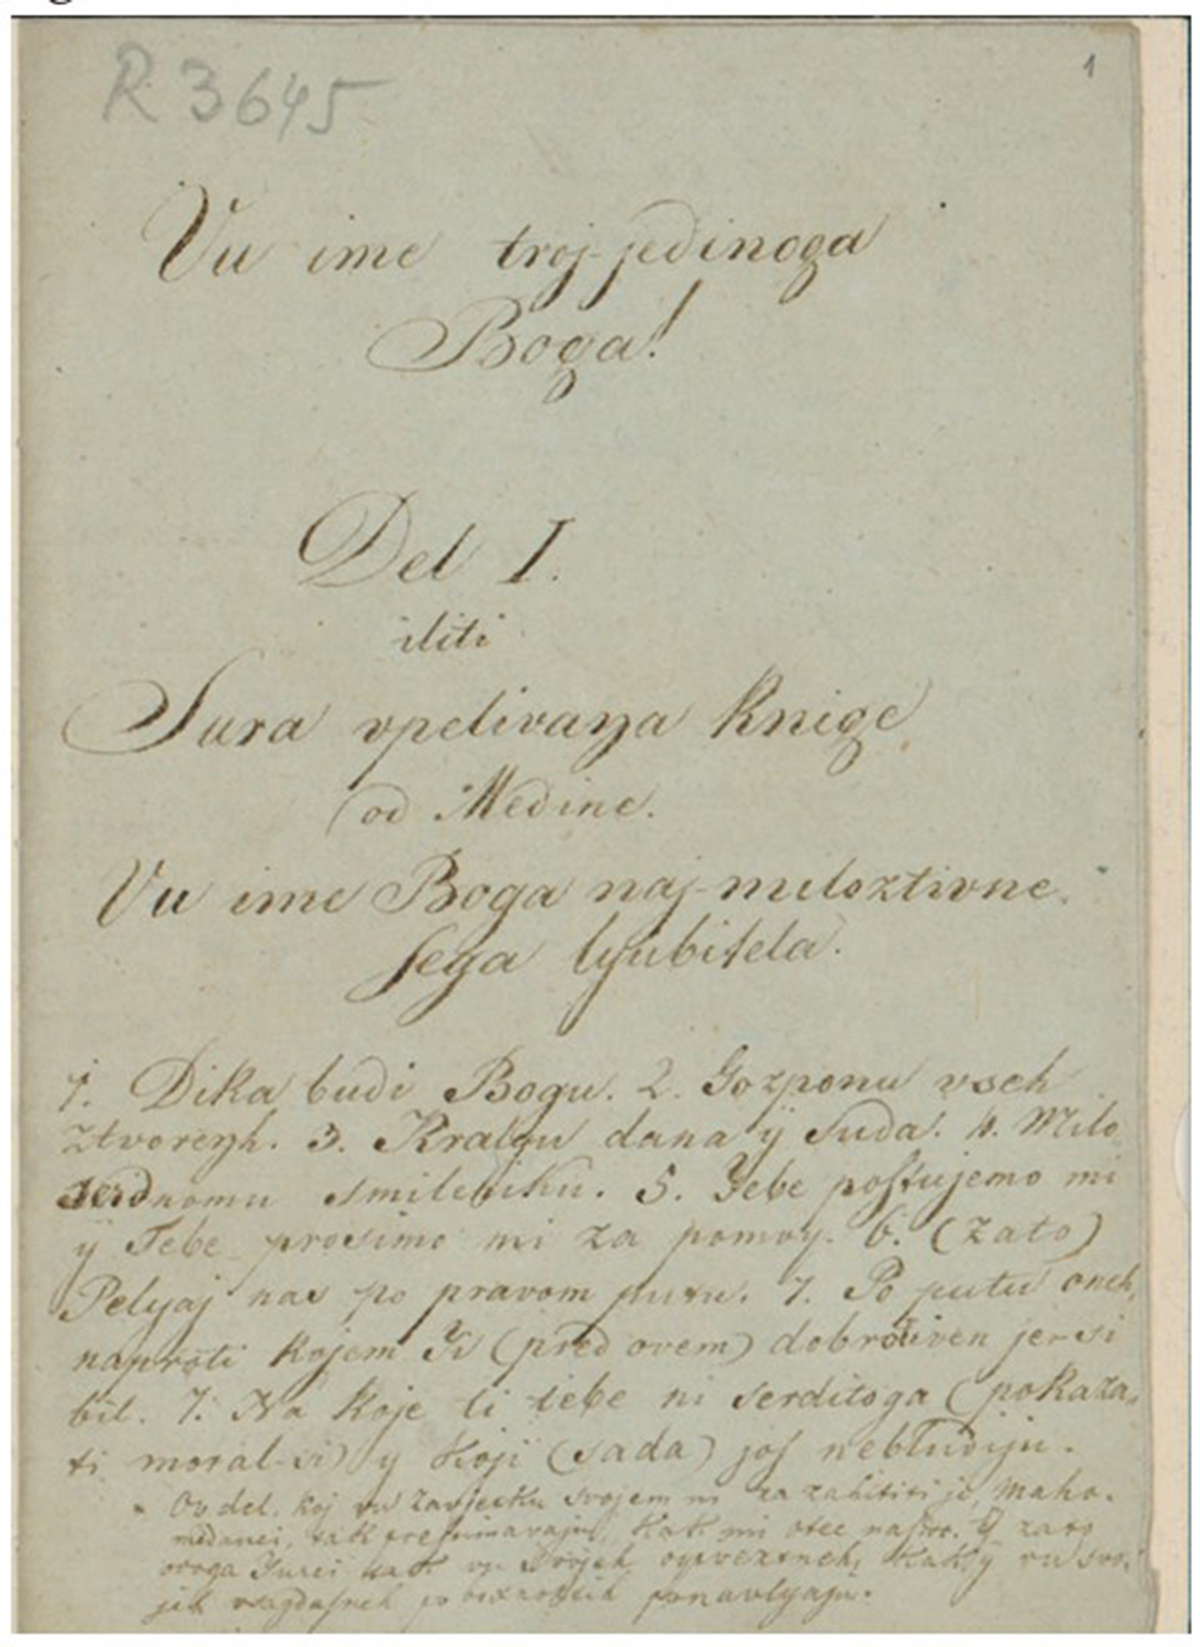 R 3645
1
Vu ime troj-jedinoga
Boga!
Del I.
iliti
Sura vpelivanya knige
od Medine.
Vu ime Boga naj-miloztivne
sega lyubitela.
1. Dika budi Bogu. 2. Gozponu vseh
ztvorenyh. 3. Kralyu dana y suda. 4. Milo
serdnomu smileniku. 5. Tebe postujemo mi
y Tebe prosimo mi za pomoy. 6. (Zato)
Pelyaj nas po pravom putu. 7. Po putu oneh,
naproti kojem Ti (pred ovem) dobrotiven jer si
bil. 7. Na koje ti tebe ni serditoga (pokaza
ti moral-si) y koji (sada) jos nebludiju.
Ov del, koj vu zavjetku svojem ni za zahititi je, Maho-
medanci, tak kak mi otec nas. Y zato
ovoga Turci kak vu svojeh kak y vu svo
jih vsagdasneh ponavlyaju.